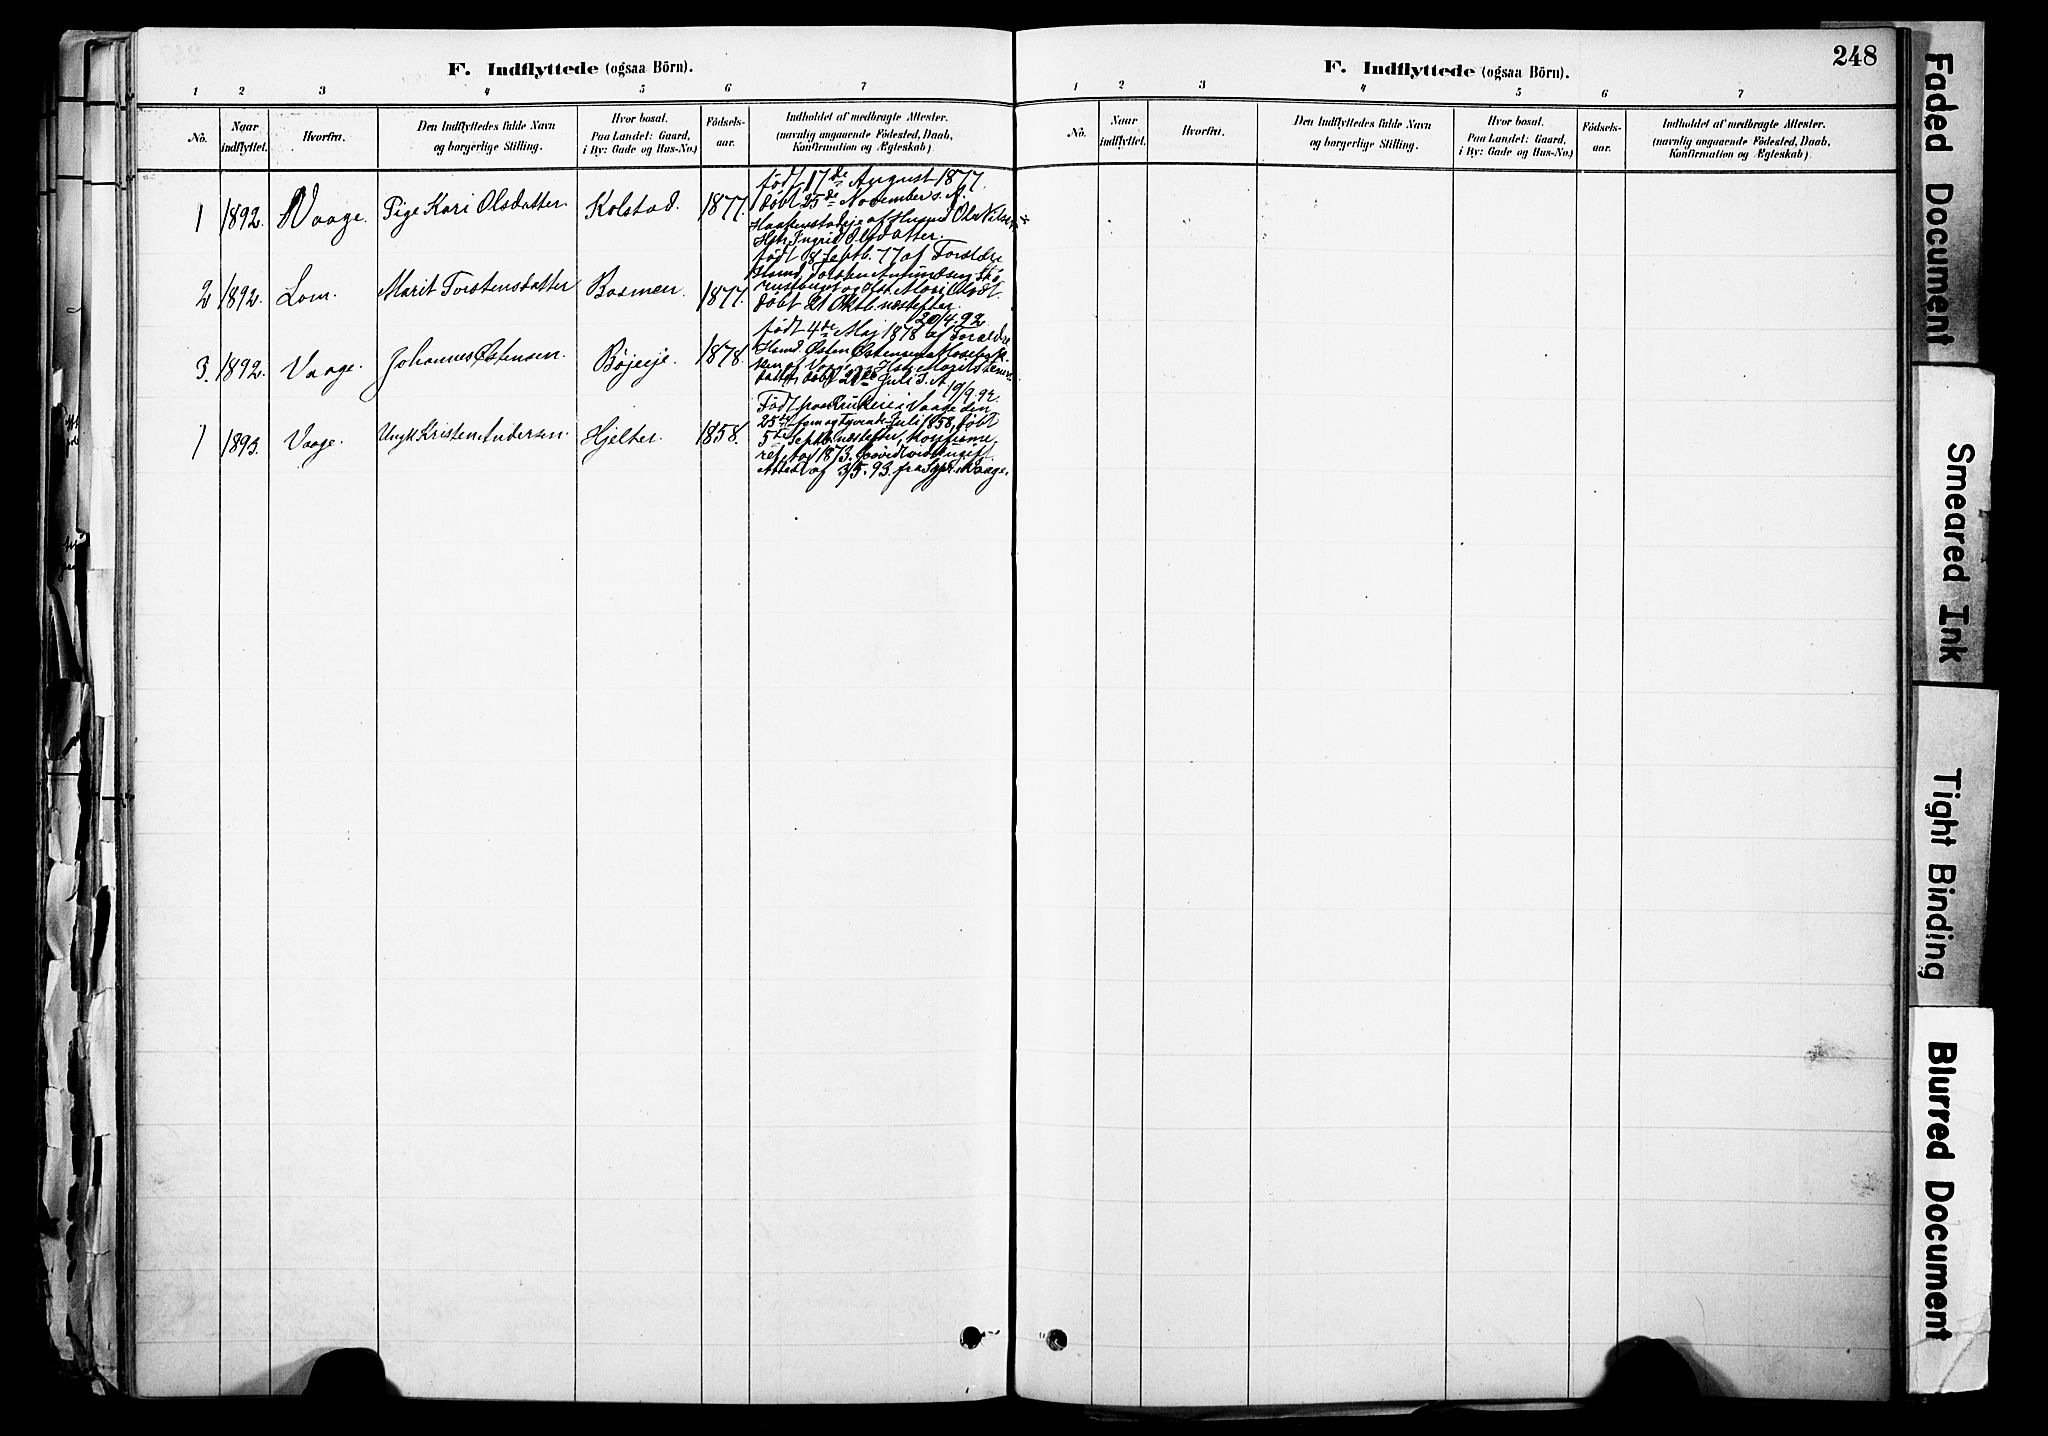 F. Indflyttede (ogsaa Börn).
1 2 3 4 5 6 7
No. Naar indflyttet. Hvorfra. Den Indflyttedes fulde Navn og borgerlige Stilling. Hvor bosat. Paa Landet: Gaard, i By: Gade og Hus-No.) Födsels-aar. Indholdet af medbragte Attester. (navnlig angaaende Födested, Daab, Konfirmation og Ægteskab)
1 1892. Vaage. Pige Kari Olsdatter. Kolstad. 1877.
født 17de August 1877.
døbt 25de November s. A.
af Husmd Ola Nils
Hst. Ingrid Olsdatter.
2 1892. Lom. Marit Torstensdatter 1877.
født 18 Septb. 77 af Forældre
Husmd. Torsten Amundsen
og Hst. Mari Olsdt.
døbt 21 Oktb. næstefter.
20/4.92
3. 1892. Vaage. Johannes Østensen. Bøjeeje. 1878.
født 4de Maj 1878 af Forældre
Husmd. Østen Østensen
døbt Juli s. A.
19/9.92.
1 1893. Vaage. Ungk. Kristen Andersen. Hjelter. 1858.
Født paa i Vaage den
25de fem og tyvende Juli 1858, døbt
5te Septb. næstefter, Konfirme
ret 1873.
Attest af 3/5.93. fra Vaage.
248
F. Indflyttede (ogsaa Börn).
1 2 3 4 5 6 7
No. Naar indflyttet. Hvorfra. Den Indflyttedes fulde Navn og borgerlige Stilling. Hvor bosat. Paa Landet: Gaard, i By: Gade og Hus-No.) Födsels-aar. Indholdet af medbragte Attester. (navnlig angaaende Födested, Daab, Konfirmation og Ægteskab)
Faded Document
Smeared Ink
Tight Binding
Blurred Document